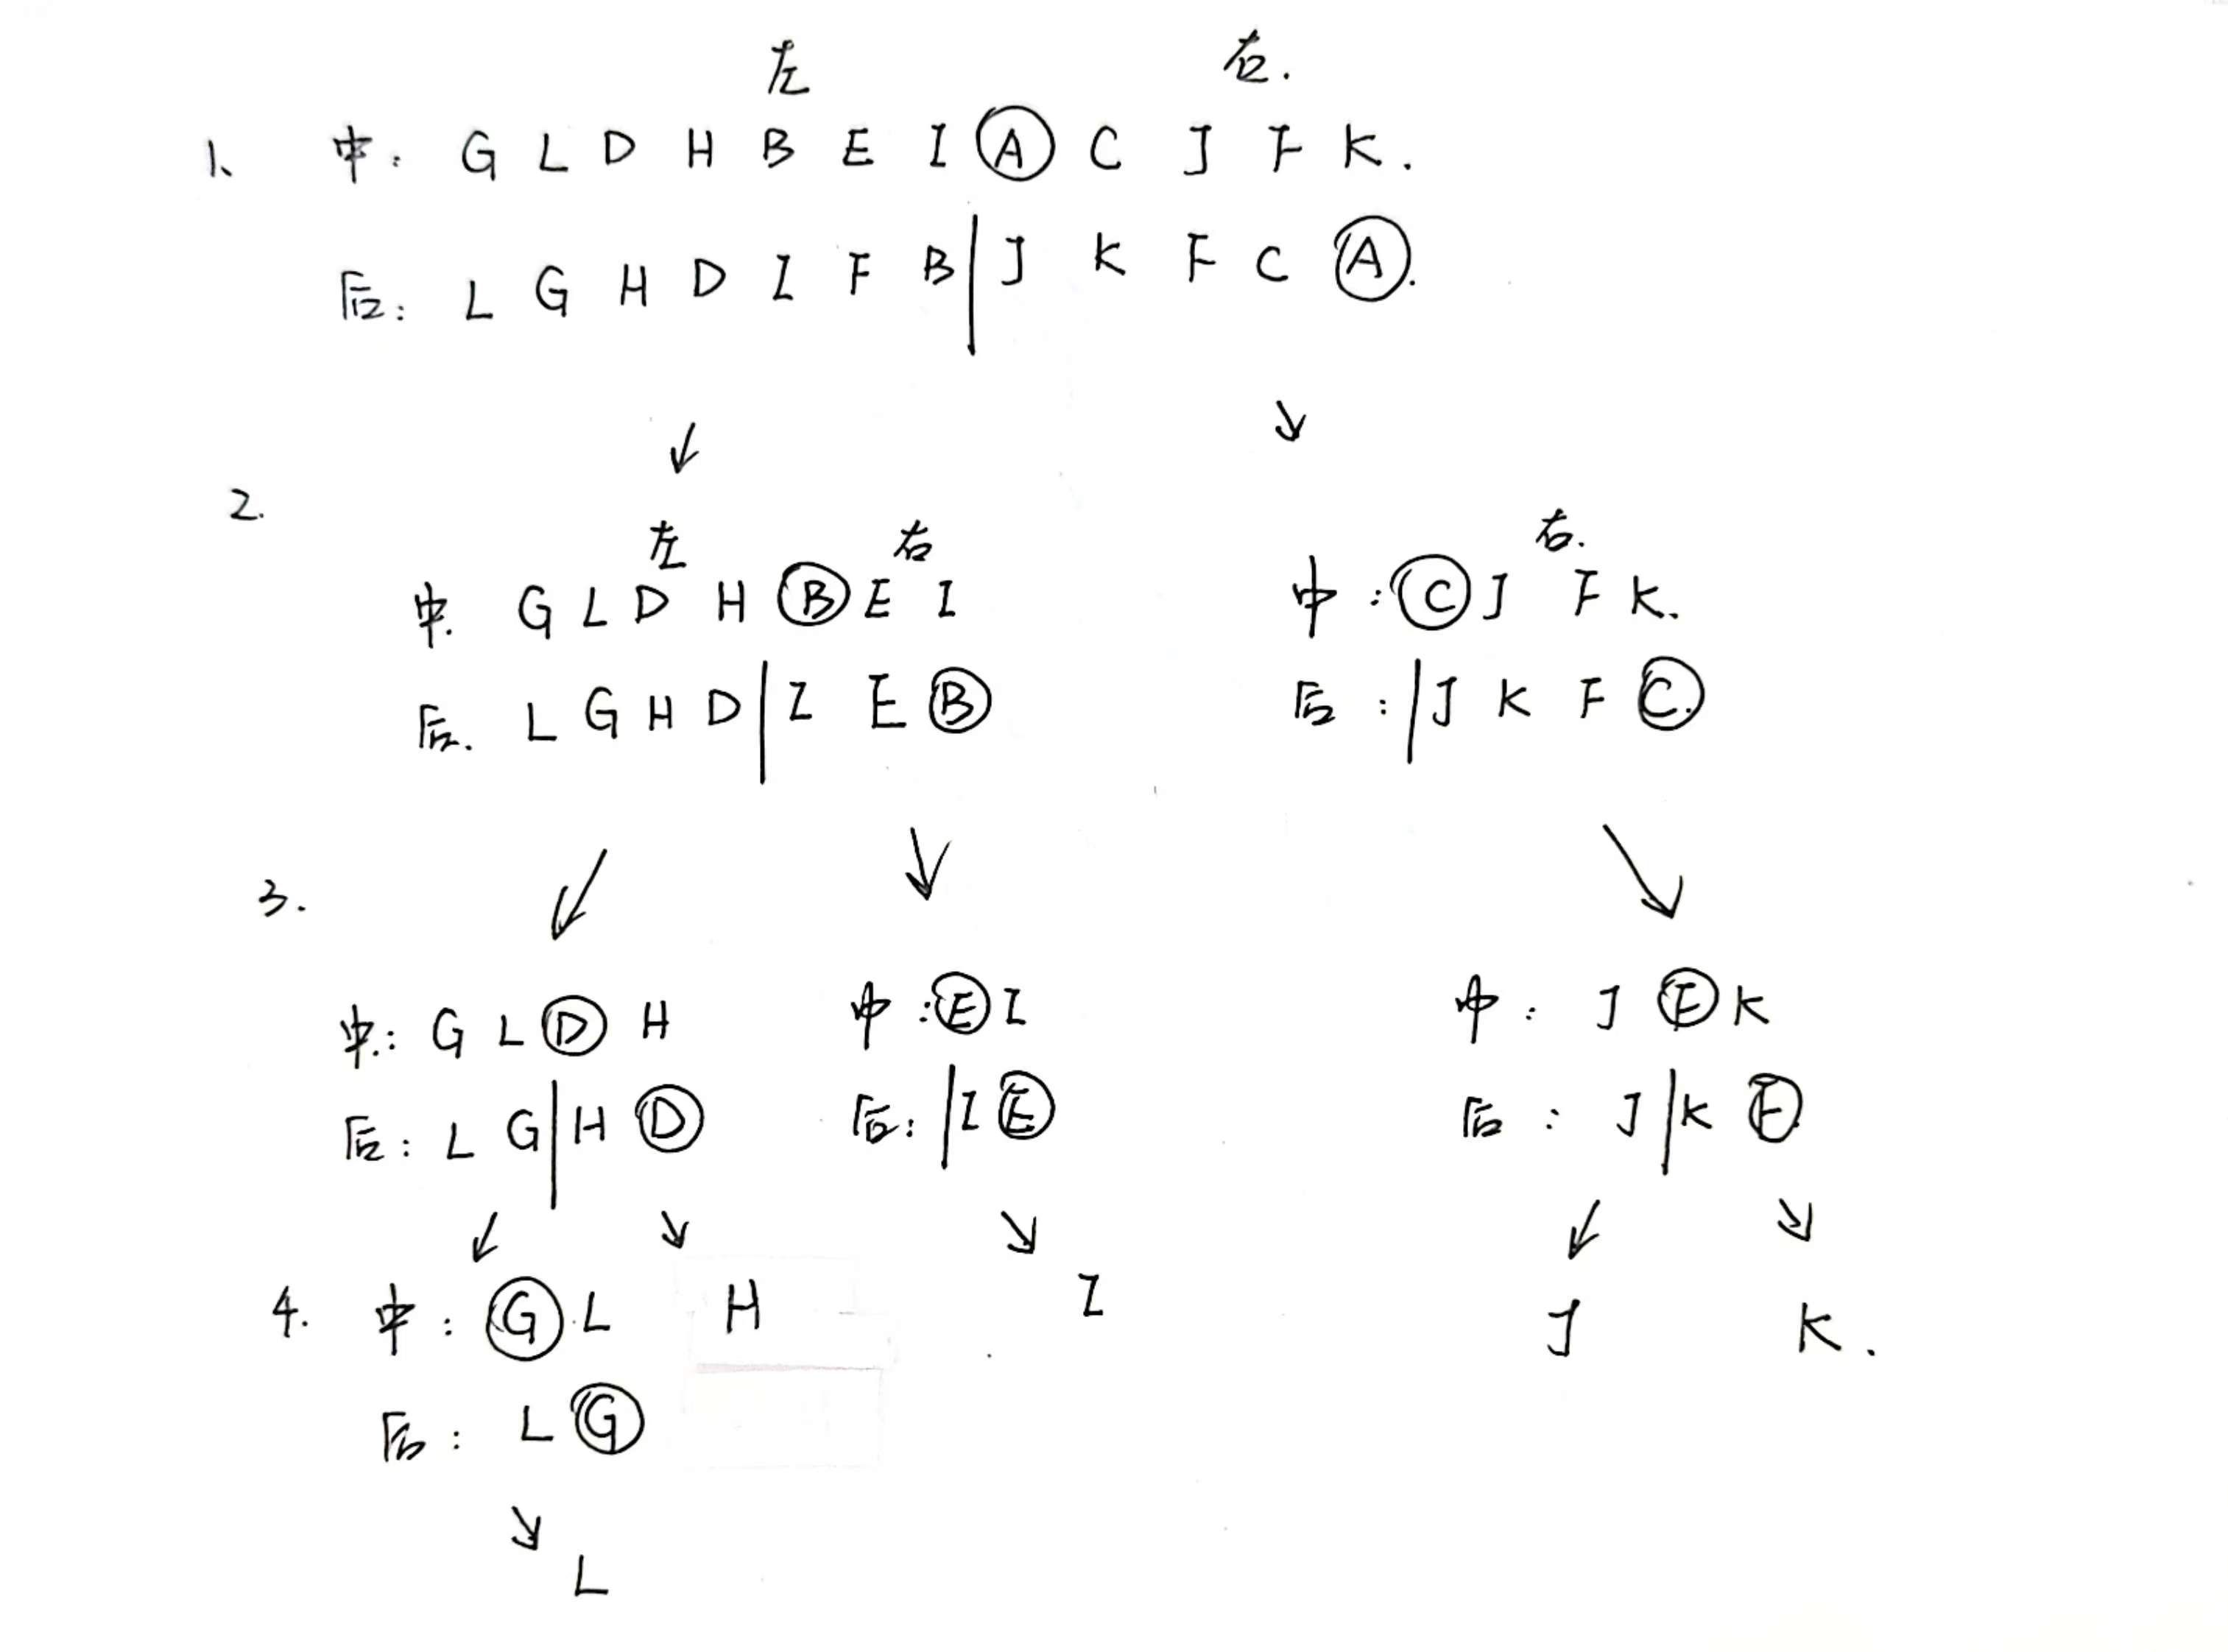 左 右.
1、 中: G L D H B E I A C J F K.
后: L G H D I F B | J K F C A.
2.
左 右
中. G L D H B E I
后. L G H D | I E B
右.
中: C J F K.
后: | J K F C.
3.
中: G L D H
后: L G | H D
中: E I
后: | I E
中: J F K
后: J | K F.
4. 中: G L H
后: L G
L
I
J K.